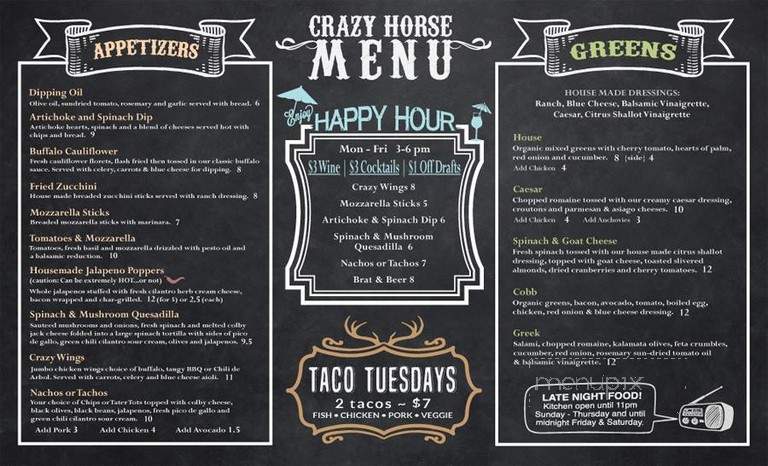 APPETIZERS
Dipping Oil
Olive oil, sundried tomato, rosemary and garlic served with bread. 6
Artichoke and Spinach Dip
Artichoke hearts, spinach and a blend of cheeses served hot with
chips and bread. 9
Buffalo Cauliflower
Fresh cauliflower florets, flash fried then tossed in our classic buffalo
sauce. Served with celery, carrots & blue cheese for dipping. 8
Fried Zucchini
House made breaded zucchini sticks served with ranch dressing. 8
Mozzarella Sticks
Breaded mozzarella sticks with marinara. 7
Tomatoes & Mozzarella
Tomatoes, fresh basil and mozzarella drizzled with pesto oil and
a balsamic reduction. 10
Housemade Jalapeno Poppers
(caution: Can be extremely HOT...or not)
Whole jalapenos stuffed with fresh cilantro herb cream cheese,
bacon wrapped and char-grilled. 12 (for 5) or 2.5 (each)
Spinach & Mushroom Quesadilla
Sauteed mushrooms and onions, fresh spinach and melted colby
jack cheese folded into a large spinach tortilla with sides of pico
de gallo, green chili cilantro sour cream, olives and jalapenos. 9.5
Crazy Wings
Jumbo chicken wings choice of buffalo, tangy BBQ or Chili de
Arbol. Served with carrots, celery and blue cheese aioli. 11
Nachos or Tachos
Your choice of Chips or Tater Tots topped with colby cheese,
black olives, black beans, jalapenos, fresh pico de gallo and
green chili cilantro sour cream. 10
Add Pork 3 Add Chicken 4 Add Avocado 1.5
CRAZY HORSE
MENU
Enjoy
HAPPY HOUR
Mon - Fri 3-6 pm
$3 Wine | $3 Cocktails | $1 Off Drafts
Crazy Wings 8
Mozzarella Sticks 5
Artichoke & Spinach Dip 6
Spinach & Mushroom
Quesadilla 6
Nachos or Tachos 7
Brat & Beer 8
TACO TUESDAYS
2 tacos ~ $7
FISH • CHICKEN • PORK • VEGGIE
GREENS
HOUSE MADE DRESSINGS:
Ranch, Blue Cheese, Balsamic Vinaigrette,
Caesar, Citrus Shallot Vinaigrette
House
Organic mixed greens with cherry tomato, hearts of palm,
red onion and cucumber. 8 |side| 4
Add Chicken 4
Caesar
Chopped romaine tossed with our creamy caesar dressing,
croutons and parmesan & asiago cheeses. 10
Add Chicken 4 Add Anchovies 3
Spinach & Goat Cheese
Fresh spinach tossed with our house made citrus shallot
dressing, topped with goat cheese, toasted slivered
almonds, dried cranberries and cherry tomatoes. 12
Cobb
Organic greens, bacon, avocado, tomato, boiled egg,
chicken, red onion & blue cheese dressing. 12
Greek
Salami, chopped romaine, kalamata olives, feta crumbles,
cucumber, red onion, rosemary sun-dried tomato oil
& balsamic vinaigrette. 12
menupix
LATE NIGHT FOOD!
Kitchen open until 11pm
Sunday - Thursday and until
midnight Friday & Saturday.